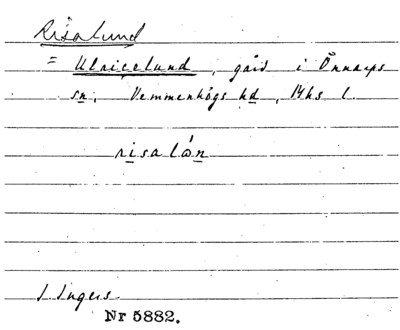 Risalund
= Ulricelund, gård i Önnarps
sn, Vemmenhögs hd, Mhs l.
risalón
I. Ingers.
Nr 5882.